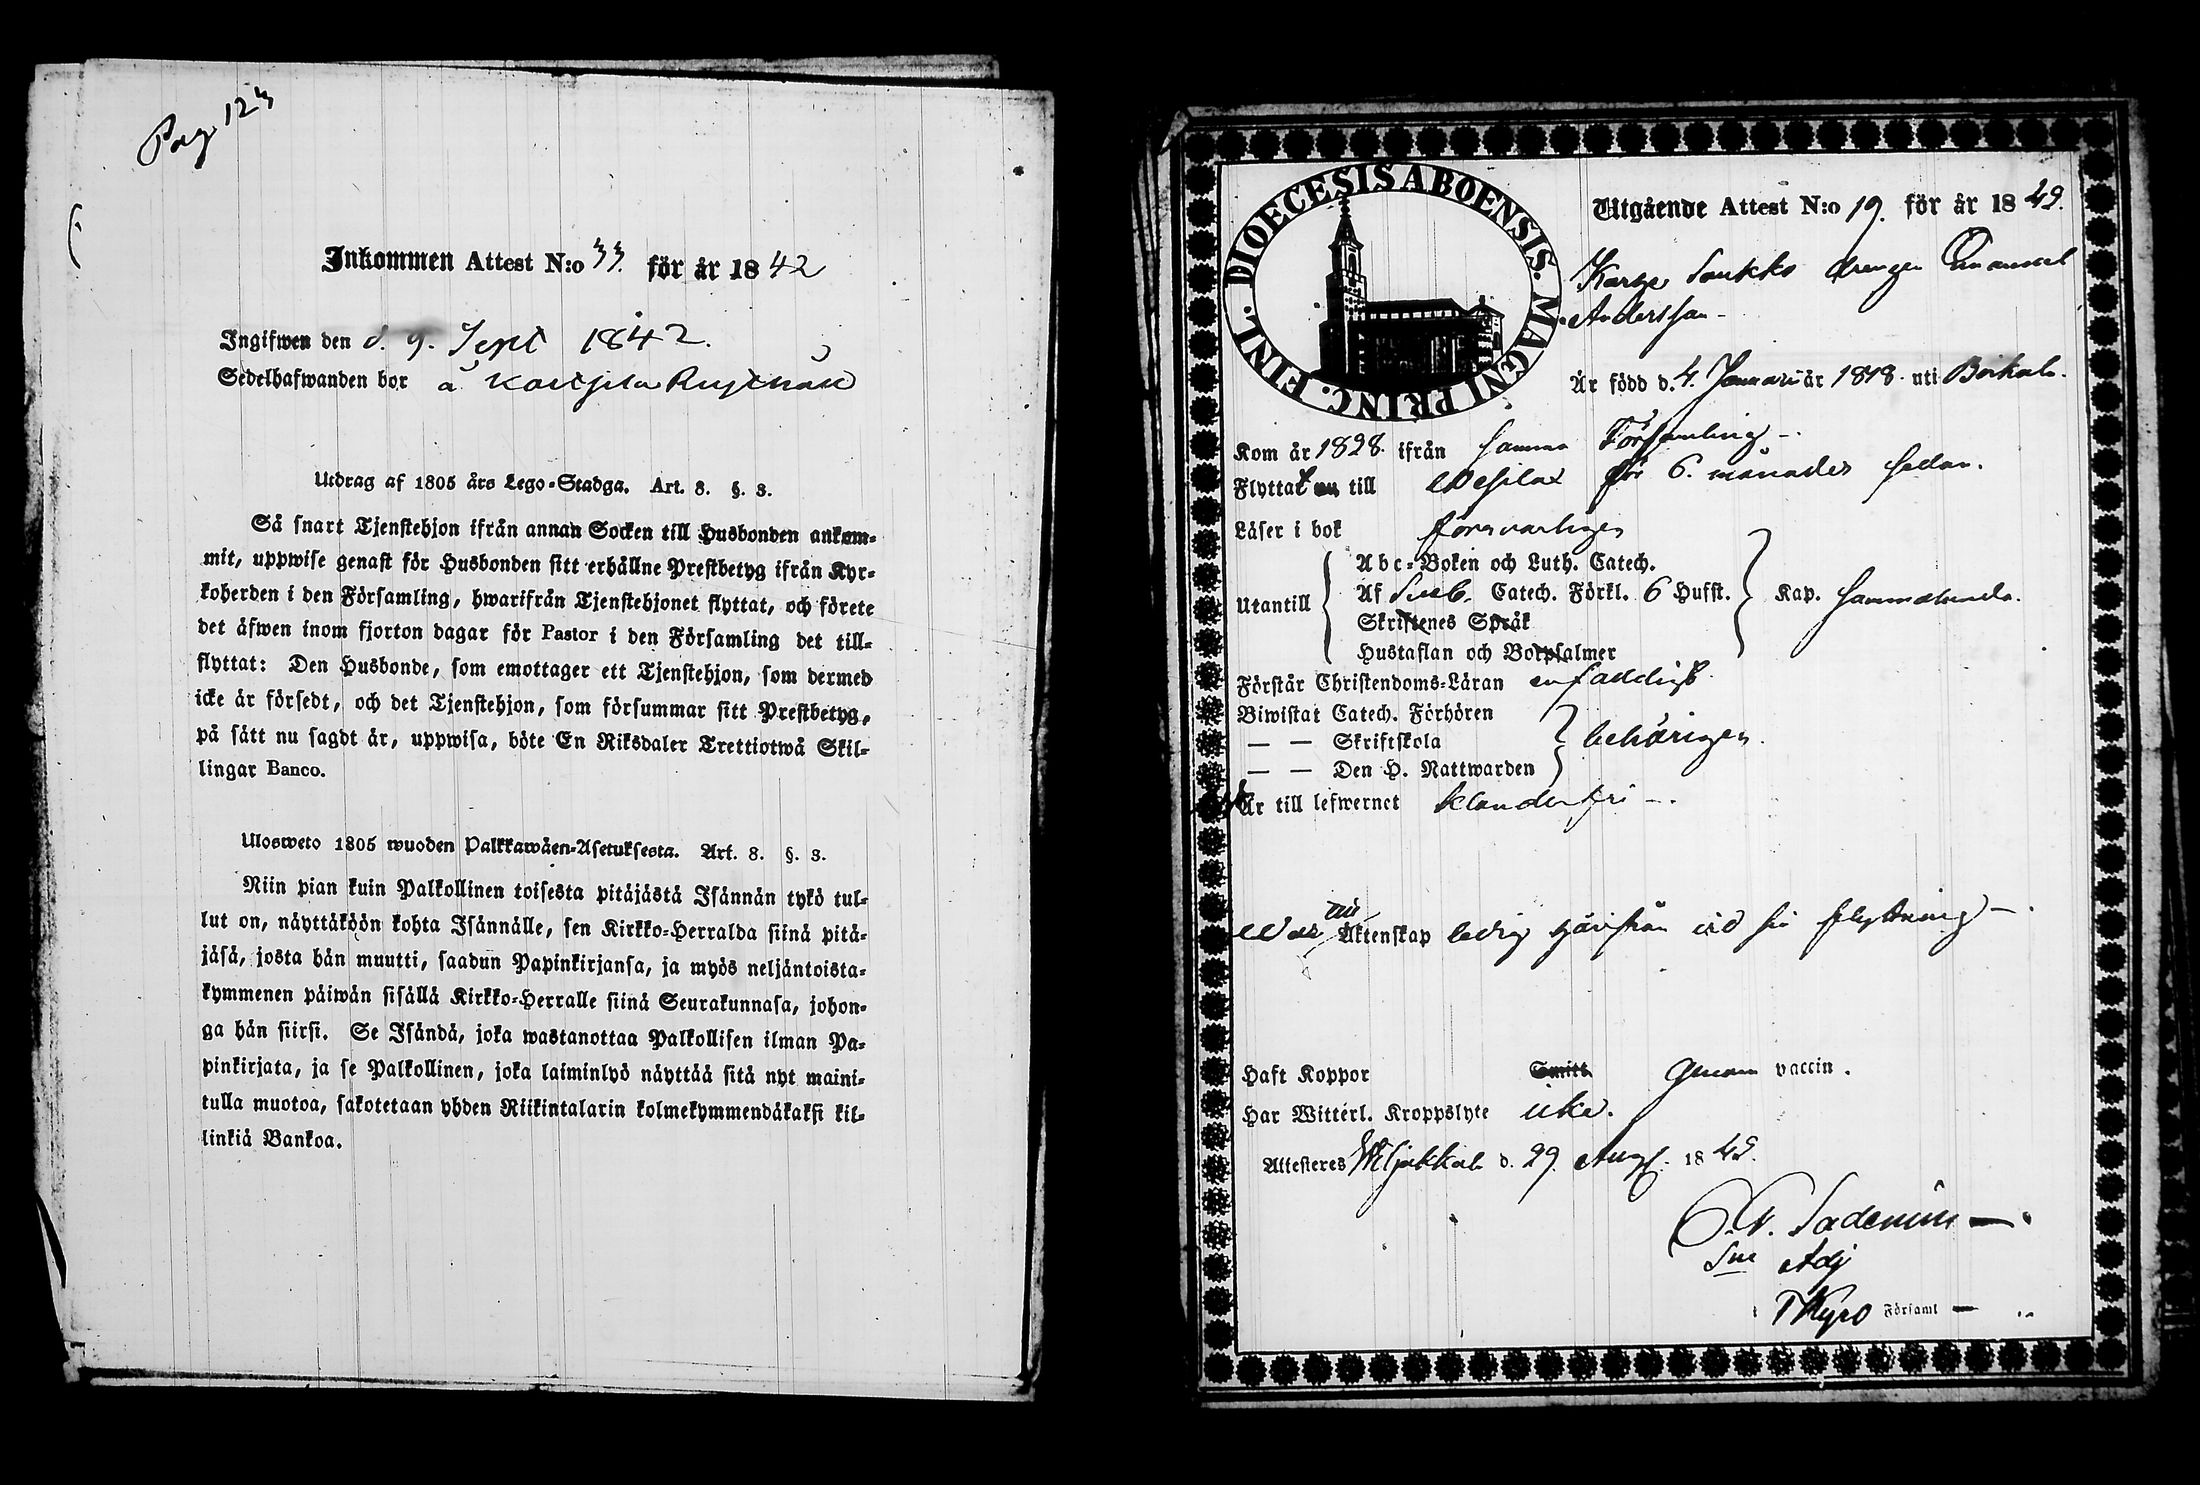 Pag 123
Inkommen Attest N:o 33. för år 1842
Ingifwen den d. 9. Sept 1842.
Sedelhafwanden bor å
Utdrag af 1805 års Lego-Stadga. Art. 8. §. 3.
Så snart Tjenstehjon ifrån annan Socken till Husbonden ankom-
mit, uppwise genast för Husbonden sitt erhållne Prestbetyg ifrån Kyr-
koherden i den Församling, hwarifrån Tjenstehjonet flyttat, och förete
det äfwen inom fjorton dagar för Pastor i den Församling det till-
flyttat: Den Husbonde, som emottager ett Tjenstehjon, som dermed
icke är försedt, och det Tjenstehjon, som försummar sitt Prestbetyg,
på sätt nu sagdt är, uppwisa, böte En Riksdaler Trettiotwå Skil-
lingar Banco.
Ulosweto 1805 wuoden Palkkawäen-Asetuksesta. Art. 8. §. 3.
Niin pian kuin Palkollinen toisesta pitäjästä Isännän tykö tul-
lut on, näyttäköön kohta Isännälle, sen Kirkko-Herralda siinä pitä-
jäsä, josta hän muutti, saadun Papinkirjansa, ja myös neljäntoista-
kymmenen päiwän sisällä Kirkko-Herralle siinä Seurakunnasa, johon-
ga hän siirsi. Se Isändä, joka wastanottaa Palkollisen ilman Pa-
pinkirjata, ja se Palkollinen, joka laiminlyö näyttää sitä nyt maini-
tulla muotoa, sakotetaan yhden Riikintalarin kolmekymmendäkaksi kil-
linkiä Bankoa.
DIOECESIS ABOENSIS. MAGNI PRINC. FINL.
Utgående Attest N:o 19. för år 1842.
drengen Emanuel
Andersson
Är född d. 4. Januari år 1818 uti Birkala.
Kom år 1828. ifrån samma Församling
Flyttat nu till Wesilax för 6. månader sedan.
Läser i bok försvarligen
Utantill
Abc-Boken och Luth. Catech.
Af Sveb. Catech. Förkl. 6 Hufst.
Skriftenes Språk
Hustaflan och Botpsalmer
Kap. sammaledes.
Förstår Christendoms-Läran enfaldigt
Biwistat Catech. Förhören
— — Skriftskola
— — Den H. Nattwarden
behörigen.
Är till lefwernet klanderfri
War till Äktenskap ledig härifrån vid sin flyttning
Haft Koppor Smitt genom vaccin.
Har Witterl. Kroppslyte icke.
Attesteres Wiljakkala d. 29. Aug. 1842.
Adj
i TKyro Församl